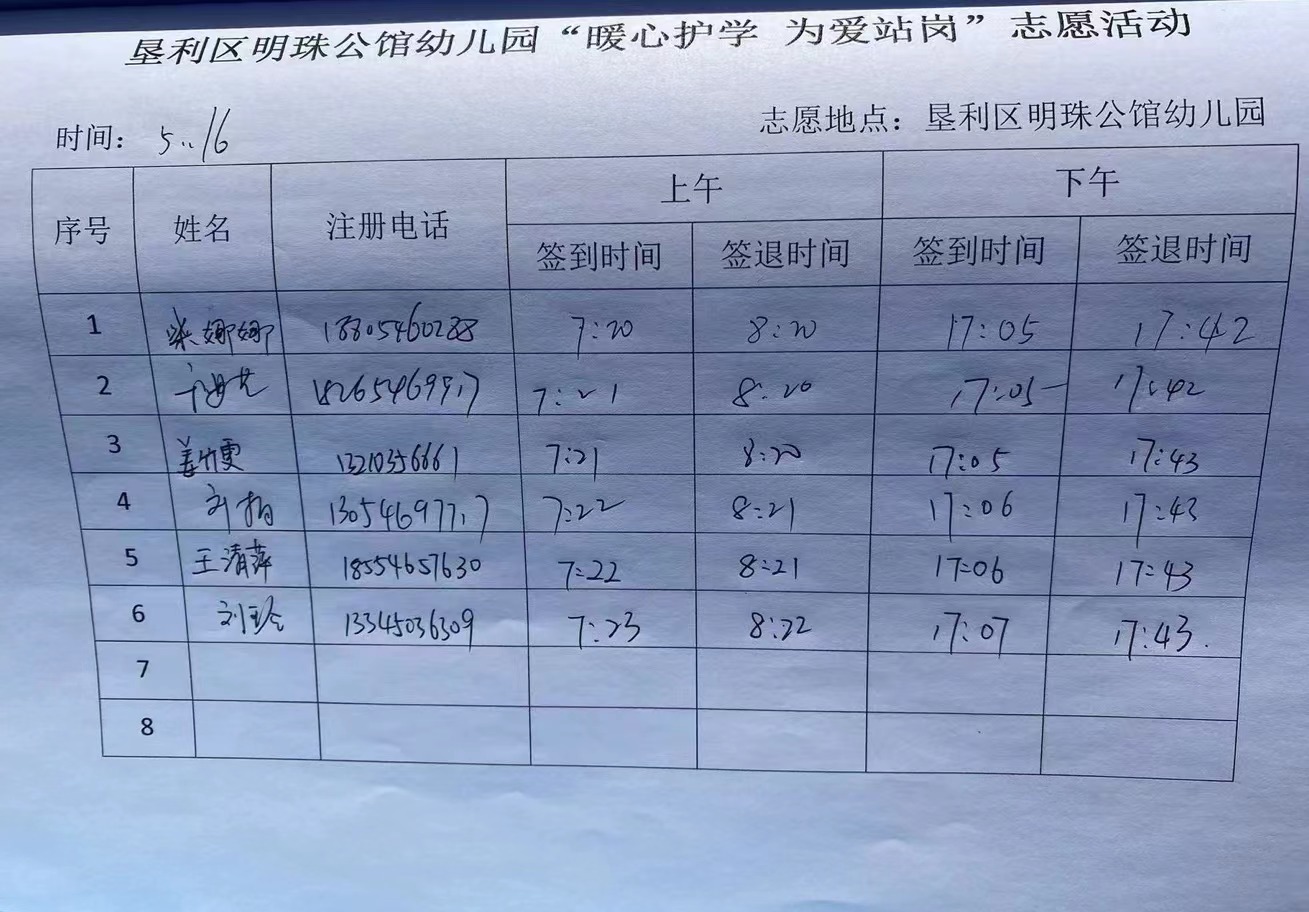 垦利区明珠公馆幼儿园“暖心护学 为爱站岗”志愿活动
时间：5..16 志愿地点：垦利区明珠公馆幼儿园
序号 姓名 注册电话 上午 下午
签到时间 签退时间 签到时间 签退时间
1 娜娜 18805460288 7:20 8:20 17:05 17:42
2 18265469917 7:21 8:20 17:05 17:42
3 姜竹雯 13210356661 7:21 8:20 17:05 17:43
4 刘 13054697717 7:22 8:21 17:06 17:43
5 王清萍 18554657630 7:22 8:21 17:06 17:43
6 刘玲 13345036309 7:23 8:22 17:07 17:43.
7
8